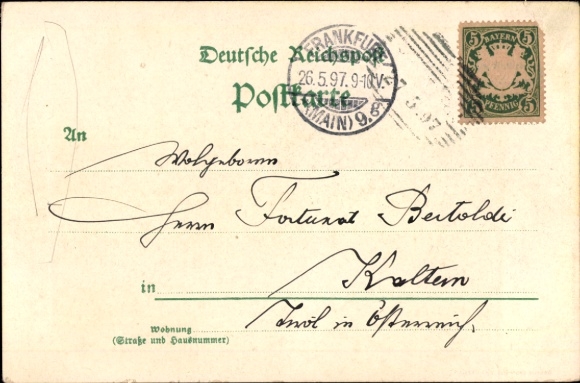 Deutsche Reichspost
Postkarte
FRANKFURT
26.5.97. 9-10V.
(MAIN) 9.
5 BAYERN 5
5 PFENNIG 5
An
Wolgeboren
Herrn Fortunat Bertoldi
in Kaltern
Tirol in Österreich.
Wohnung
(Straße und Hausnummer)